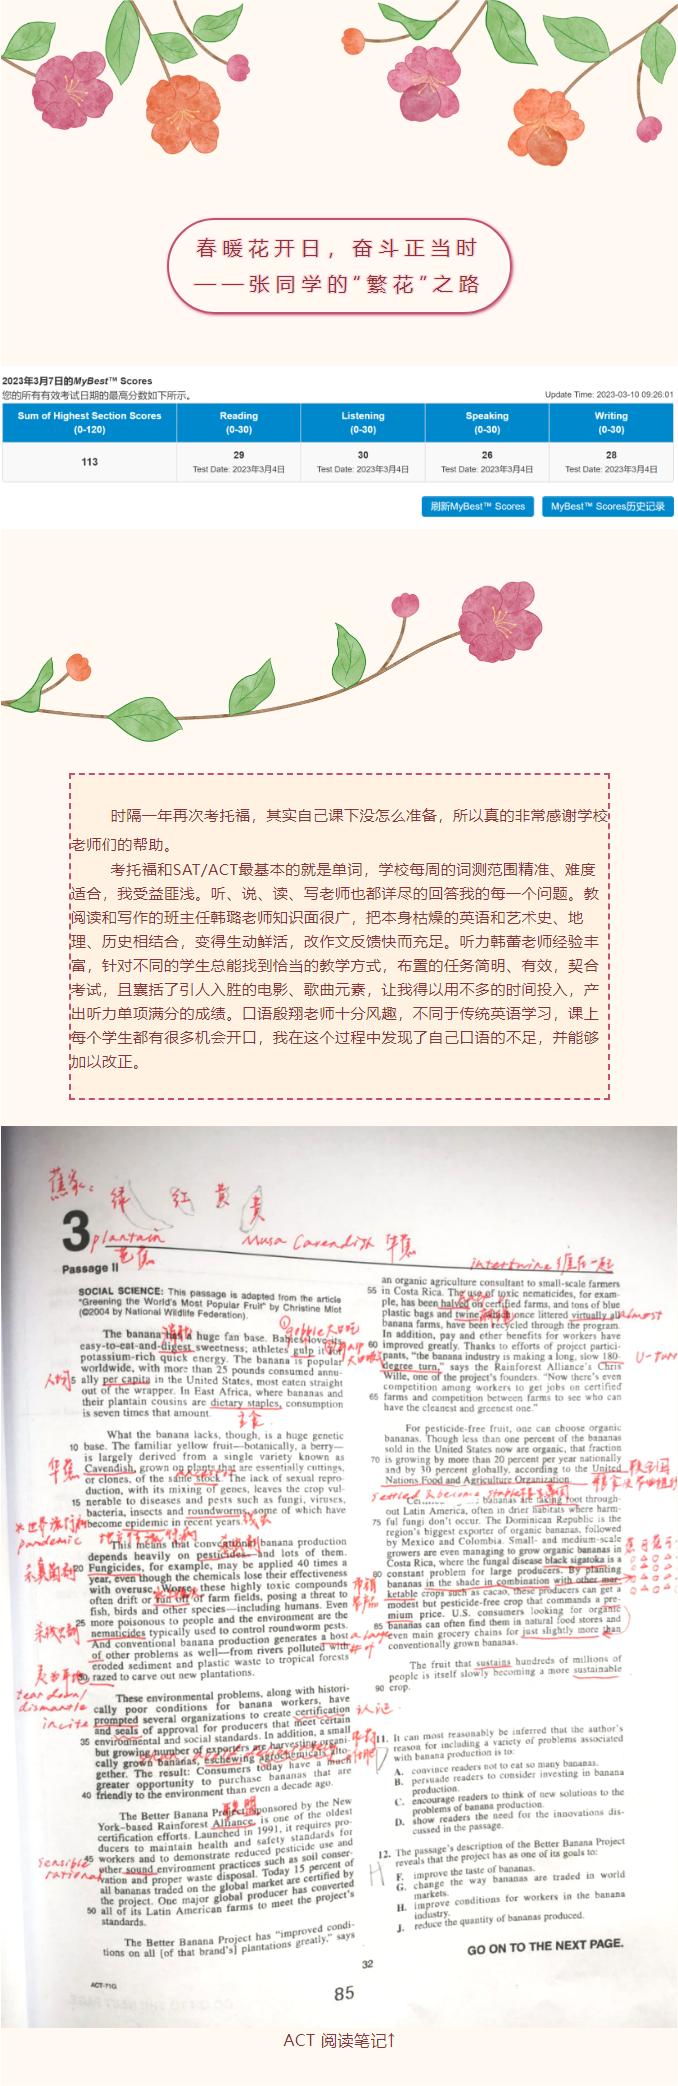 春暖花开日，奋斗正当时
——张同学的“繁花”之路
2023年3月7日的MyBest™ Scores
您的所有有效考试日期的最高分数如下所示。
Update Time: 2023-03-10 09:26:01
Sum of Highest Section Scores (0-120)
Reading (0-30)
Listening (0-30)
Speaking (0-30)
Writing (0-30)
113
29
Test Date: 2023年3月4日
30
Test Date: 2023年3月4日
26
Test Date: 2023年3月4日
28
Test Date: 2023年3月4日
刷新MyBest™ Scores
MyBest™ Scores历史记录
时隔一年再次考托福，其实自己课下没怎么准备，所以真的非常感谢学校
老师们的帮助。
考托福和SAT/ACT最基本的就是单词，学校每周的词测范围精准、难度
适合，我受益匪浅。听、说、读、写老师也都详尽的回答我的每一个问题。教
阅读和写作的班主任韩璐老师知识面很广，把本身枯燥的英语和艺术史、地
理、历史相结合，变得生动鲜活，改作文反馈快而充足。听力韩蕾老师经验丰
富，针对不同的学生总能找到恰当的教学方式，布置的任务简明、有效，契合
考试，且囊括了引人入胜的电影、歌曲元素，让我得以用不多的时间投入，产
出听力单项满分的成绩。口语殷翔老师十分风趣，不同于传统英语学习，课上
每个学生都有很多机会开口，我在这个过程中发现了自己口语的不足，并能够
加以改正。
蕉家：绿 红 黄
3
plantain
芭蕉
Musa Cavendish 华蕉
intertwine
Passage II
SOCIAL SCIENCE: This passage is adapted from the article
"Greening the World's Most Popular Fruit" by Christine Mlot
(©2004 by National Wildlife Federation).
The banana has a huge fan base. Babies love its
easy-to-eat-and-digest sweetness; athletes gulp it
potassium-rich quick energy. The banana is popular
worldwide, with more than 25 pounds consumed annu-
5 ally per capita in the United States, most eaten straight
out of the wrapper. In East Africa, where bananas and
their plantain cousins are dietary staples, consumption
is seven times that amount.
主食
What the banana lacks, though, is a huge genetic
10 base. The familiar yellow fruit—botanically, a berry—
is largely derived from a single variety known as
华蕉
Cavendish, grown on plants that are essentially cuttings,
or clones, of the same stock. The lack of sexual repro-
duction, with its mixing of genes, leaves the crop vul-
15 nerable to diseases and pests such as fungi, viruses,
bacteria, insects and roundworms, some of which have
become epidemic in recent years.
pandemic
This means that conventional banana production
depends heavily on pesticides—and lots of them.
20 Fungicides, for example, may be applied 40 times a
year, even though the chemicals lose their effectiveness
with overuse. Worse, these highly toxic compounds
often drift or run off of farm fields, posing a threat to
fish, birds and other species—including humans. Even
25 more poisonous to people and the environment are the
nematicides typically used to control roundworm pests.
And conventional banana production generates a host
of other problems as well—from rivers polluted with
eroded sediment and plastic waste to tropical forests
30 razed to carve out new plantations.
tear down/
dismantle
incite
These environmental problems, along with histori-
cally poor conditions for banana workers, have
prompted several organizations to create certification
and seals of approval for producers that meet certain
35 environmental and social standards. In addition, a small
but growing number of exporters are harvesting organi-
cally grown bananas, eschewing agrochemicals alto-
gether. The result: Consumers today have a much
greater opportunity to purchase bananas that are
40 friendly to the environment than even a decade ago.
认证
联盟
The Better Banana Project, sponsored by the New
York-based Rainforest Alliance, is one of the oldest
certification efforts. Launched in 1991, it requires pro-
ducers to maintain health and safety standards for
45 workers and to demonstrate reduced pesticide use and
other sound environment practices such as soil conser-
vation and proper waste disposal. Today 15 percent of
all bananas traded on the global market are certified by
the project. One major global producer has converted
50 all of its Latin American farms to meet the project's
standards.
sensible
rational
The Better Banana Project has "improved condi-
tions on all [of that brand's] plantations greatly," says
an organic agriculture consultant to small-scale farmers
55 in Costa Rica. The use of toxic nematicides, for exam-
ple, has been halved on certified farms, and tons of blue
plastic bags and twine, which once littered virtually all
almost
banana farms, have been recycled through the program.
In addition, pay and other benefits for workers have
60 improved greatly. Thanks to efforts of project partici-
pants, "the banana industry is making a long, slow 180-
degree turn," says the Rainforest Alliance's Chris
U-turn
Wille, one of the project's founders. "Now there's even
competition among workers to get jobs on certified
65 farms and competition between farms to see who can
have the cleanest and greenest one."
For pesticide-free fruit, one can choose organic
bananas. Though less than one percent of the bananas
sold in the United States now are organic, that fraction
70 is growing by more than 20 percent per year nationally
and by 30 percent globally, according to the United
Nations Food and Agriculture Organization.
联合国
bananas are taking root through-
out Latin America, often in drier habitats where harm-
75 ful fungi don't occur. The Dominican Republic is the
region's biggest exporter of organic bananas, followed
by Mexico and Colombia. Small- and medium-scale
growers are even managing to grow organic bananas in
Costa Rica, where the fungal disease black sigatoka is a
80 constant problem for large producers. By planting
bananas in the shade in combination with other mar-
ketable crops such as cacao, these producers can get a
modest but pesticide-free crop that commands a pre-
mium price. U.S. consumers looking for organic
85 bananas can often find them in natural food stores and
even main grocery chains for just slightly more than
conventionally grown bananas.
The fruit that sustains hundreds of millions of
people is itself slowly becoming a more sustainable
90 crop.
11. It can most reasonably be inferred that the author's
reason for including a variety of problems associated
with banana production is to:
A. convince readers not to eat so many bananas.
B. persuade readers to consider investing in banana
production.
C. encourage readers to think of new solutions to the
problems of banana production.
D. show readers the need for the innovations dis-
cussed in the passage.
12. The passage's description of the Better Banana Project
reveals that the project has as one of its goals to:
F. improve the taste of bananas.
G. change the way bananas are traded in world
markets.
H. improve conditions for workers in the banana
industry.
J. reduce the quantity of bananas produced.
D
H
32
GO ON TO THE NEXT PAGE.
ACT-71G
85
ACT 阅读笔记↑